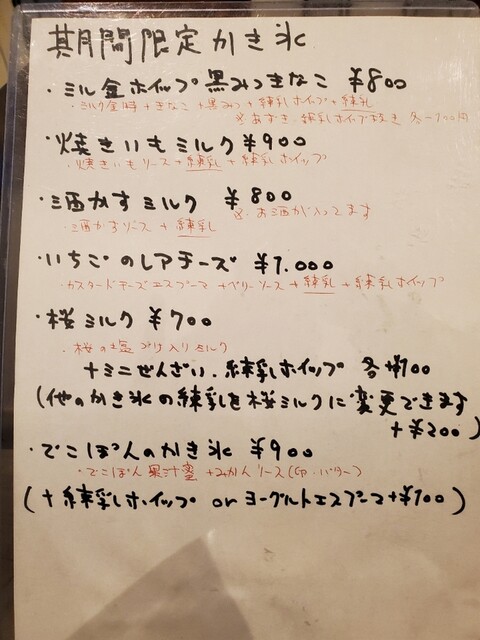 期間限定かき氷
・ミル金ホイップ黒みつきなこ ¥800
・ミルク金時+きなこ+黒みつ+練乳ホイップ+練乳
※あずき・練乳ホイップ抜き 各-100円
・焼きいもミルク ¥900
・焼きいもソース+練乳+練乳ホイップ
・酒かすミルク ¥800
※お酒が入ってます
・酒かすソース+練乳
・いちごのレアチーズ ¥1.000
・カスタードチーズエスプーマ+ベリーソース+練乳+練乳ホイップ
・桜ミルク ¥700
・桜の塩づけ入りミルク
+ミニぜんざい・練乳ホイップ 各¥100
(他のかき氷の練乳を桜ミルクに変更できます
+¥200)
・でこぽんのかき氷 ¥900
・でこぽん果汁蜜+みかんソース(卵・バター)
(+練乳ホイップ or ヨーグルトエスプーマ+¥100)